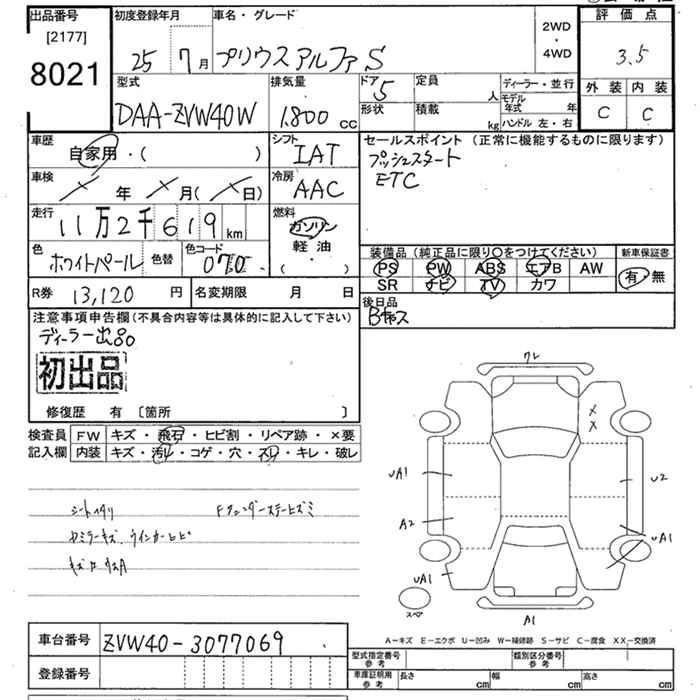 出品番号 初度登録年月 車名・グレード 評価点
[2177] 2WD
8021 25 7月 プリウスアルファS ・ 3.5
4WD
型式 排気量 ドア 定員 ディーラー・並行 外装 内装
5 人 モデル年式 年
DAA-ZVW40W 1.800 cc 形状 積載 C C
kg ハンドル 左・右
車歴 シフト セールスポイント (正常に機能するものに限ります)
自家用・( ) IAT プッシュスタート
車検 冷房 ETC
／ 年 ／ 月(／日) AAC
走行 燃料
11万2千619km ガソリン
色 色替 色コード 軽油 装備品 (純正品に限り○をつけてください) 新車保証書
ホワイトパール 070 ( ・ ) PS PW ABS エアB AW 有・無
R券 13,120円 名変期限 月 日 SR ナビ TV カワ
注意事項申告欄(不具合内容等は具体的に記入して下さい) 後日品
ディーラー出品 Bキャス
初出品
修復歴 有 〔箇所 〕
検査員 FW キズ・飛石・ヒビ割・リペア跡・×要
記入欄 内装 キズ・汚レ・コゲ・穴・スレ・キレ・破レ
ワレ
×
×
UA1 U2
A2 UA1
UA1
スペア A1
A－キズ E－エクボ U－凹み W－補修跡 S－サビ C－腐食 XX－交換済
車台番号 ZVW40-3077069
登録番号
型式指定番号 参考 類別区分番号 参考
車庫証明用 参考 長さ cm 幅 cm 高さ cm